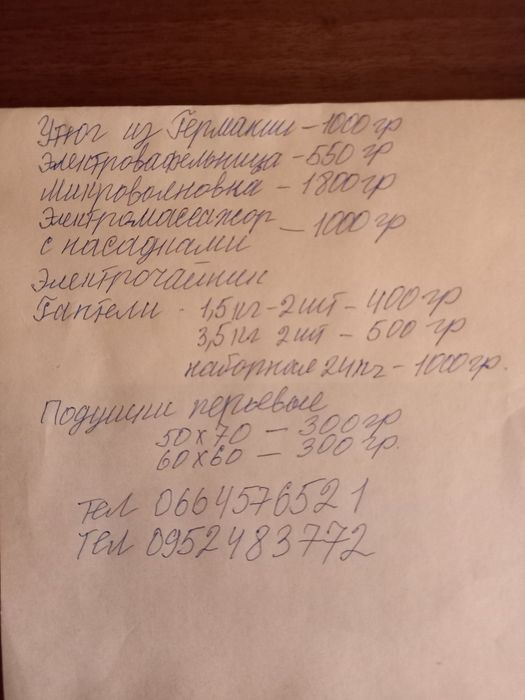 Утюг из Германии – 1000 гр
Электровафельница – 550 гр
Микроволновка – 1800 гр
Электромассажор – 1000 гр
с насадками
Электрочайник
Гантели 1,5 кг – 2 шт – 400 гр
3,5 кг 2 шт – 500 гр
наборная 24 кг – 1000 гр.
Подушки перьевые
50 х 70 – 300 гр
60 х 60 – 300 гр.
Тел 0664576521
Тел 0952483772